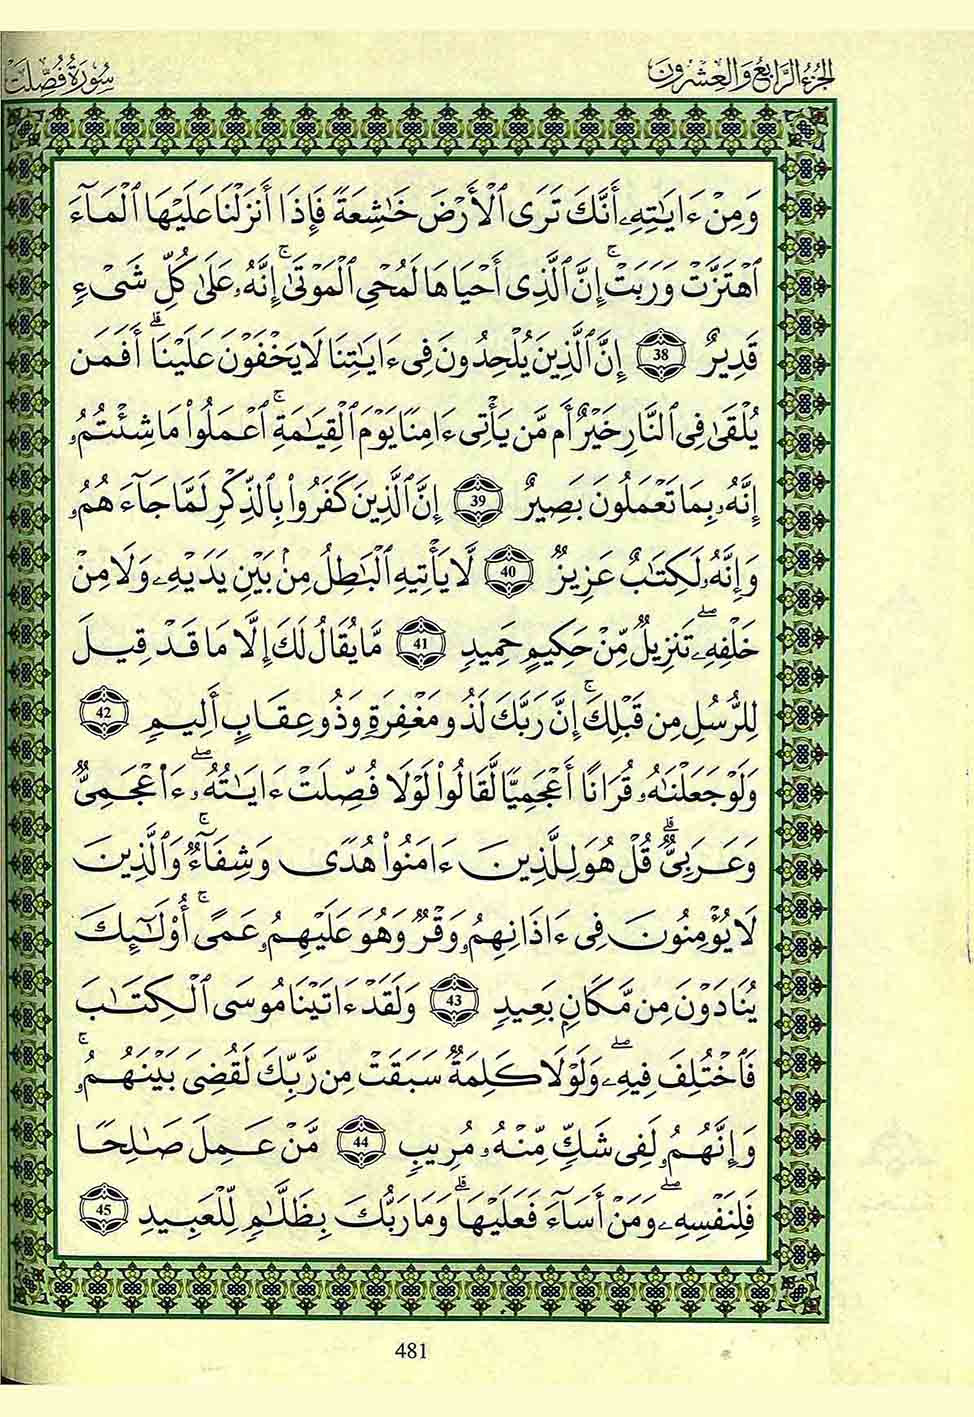 الجزء الرابع والعشرون
سورة فصلت
وَمِنْ ءَايَٰتِهِۦ أَنَّكَ تَرَى ٱلْأَرْضَ خَٰشِعَةً فَإِذَا أَنزَلْنَا عَلَيْهَا ٱلْمَآءَ
ٱهْتَزَّتْ وَرَبَتْۚ إِنَّ ٱلَّذِى أَحْيَاهَا لَمُحْىِ ٱلْمَوْتَىٰۚ إِنَّهُۥ عَلَىٰ كُلِّ شَىْءٍ
قَدِيرٌ 38 إِنَّ ٱلَّذِينَ يُلْحِدُونَ فِى ءَايَٰتِنَا لَا يَخْفَوْنَ عَلَيْنَاۗ أَفَمَن
يُلْقَىٰ فِى ٱلنَّارِ خَيْرٌ أَم مَّن يَأْتِى ءَامِنًا يَوْمَ ٱلْقِيَٰمَةِۚ ٱعْمَلُواْ مَا شِئْتُمُۥ
إِنَّهُۥ بِمَا تَعْمَلُونَ بَصِيرٌ 39 إِنَّ ٱلَّذِينَ كَفَرُواْ بِٱلذِّكْرِ لَمَّا جَآءَهُمُۥ
وَإِنَّهُۥ لَكِتَٰبٌ عَزِيزٌ 40 لَّا يَأْتِيهِ ٱلْبَٰطِلُ مِنۢ بَيْنِ يَدَيْهِۦ وَلَا مِنْ
خَلْفِهِۦۖ تَنزِيلٌ مِّنْ حَكِيمٍ حَمِيدٍ 41 مَّا يُقَالُ لَكَ إِلَّا مَا قَدْ قِيلَ
لِلرُّسُلِ مِن قَبْلِكَۚ إِنَّ رَبَّكَ لَذُو مَغْفِرَةٍ وَذُو عِقَابٍ أَلِيمٍ 42
وَلَوْ جَعَلْنَٰهُۥ قُرَانًا أَعْجَمِيًّا لَّقَالُواْ لَوْلَا فُصِّلَتْ ءَايَٰتُهُۥۖ ءَا۬عْجَمِىٌّ
وَعَرَبِىٌّۗ قُلْ هُوَ لِلَّذِينَ ءَامَنُواْ هُدًى وَشِفَآءٌۚ وَٱلَّذِينَ
لَا يُؤْمِنُونَ فِى ءَاذَانِهِمُۥ وَقْرٌ وَهُوَ عَلَيْهِمُۥ عَمًىۚ أُوْلَٰٓئِكَ
يُنَادَوْنَ مِن مَّكَانٍۭ بَعِيدٍ 43 وَلَقَدْ ءَاتَيْنَا مُوسَى ٱلْكِتَٰبَ
فَٱخْتُلِفَ فِيهِۦۖ وَلَوْلَا كَلِمَةٌ سَبَقَتْ مِن رَّبِّكَ لَقُضِىَ بَيْنَهُمُۥۚ
وَإِنَّهُمُۥ لَفِى شَكٍّ مِّنْهُۥ مُرِيبٍ 44 مَّنْ عَمِلَ صَٰلِحًا
فَلِنَفْسِهِۦۖ وَمَنْ أَسَآءَ فَعَلَيْهَاۗ وَمَا رَبُّكَ بِظَلَّٰمٍ لِّلْعَبِيدِ 45
481